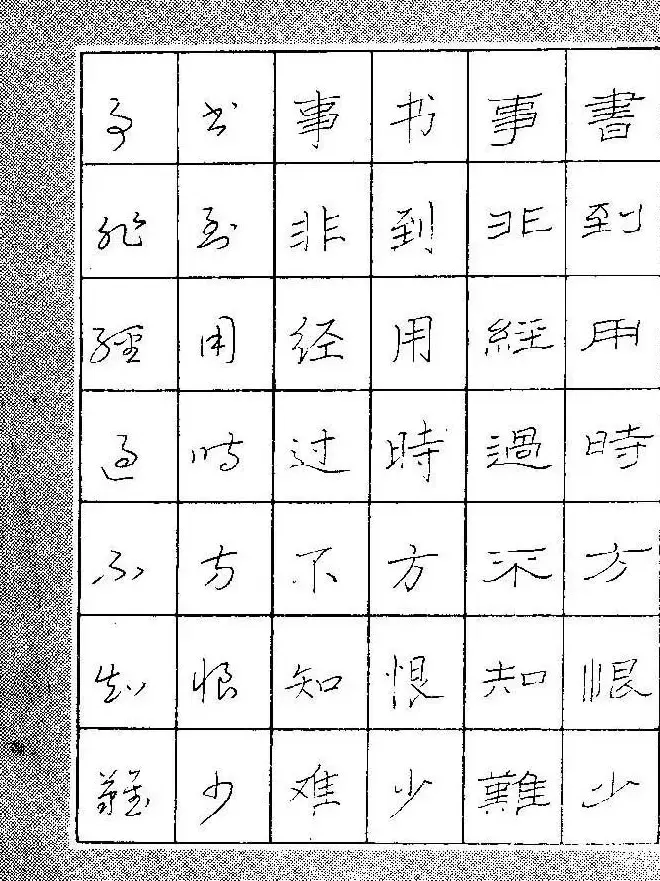 書到用時方恨少
事非經過不知難
书到用時方恨少
事非经过不知难
书到用时方恨少
事非經過不知難